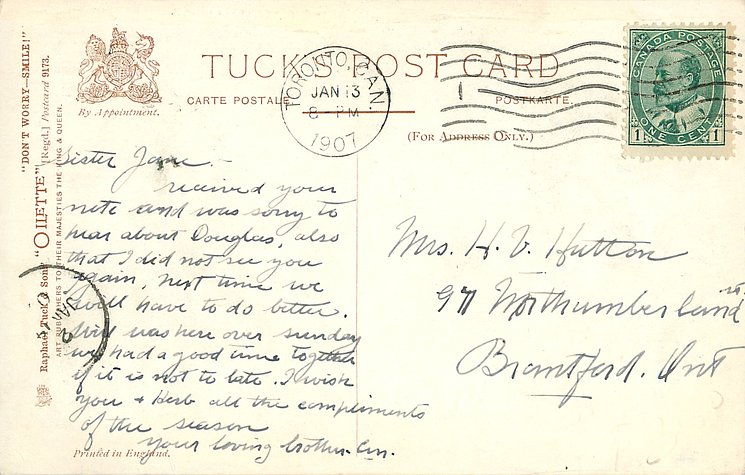 TUCK'S POST CARD
CARTE POSTALE
POSTKARTE.
(For Address Only.)
By Appointment.
TORONTO, CAN.
JAN 13
8 - PM
1907
1
CANADA POSTAGE
ONE CENT
1 1
"DON'T WORRY—SMILE!"
Raphael Tuck & Sons' "OILETTE" [Regd.] Postcard 9173.
ART PUBLISHERS TO THEIR MAJESTIES THE KING & QUEEN.
Sister Jane -
received your
note and was sorry to
hear about Douglas, also
that I did not see you
again, next time we
will have to do better.
Will was here over Sunday
we had a good time together
if it is not to late. I wish
you + Herb all the compliments
of the season
your loving brother
Printed in England.
Mrs. H. V. Hutton
97 Northumberland St
Brantford. Ont